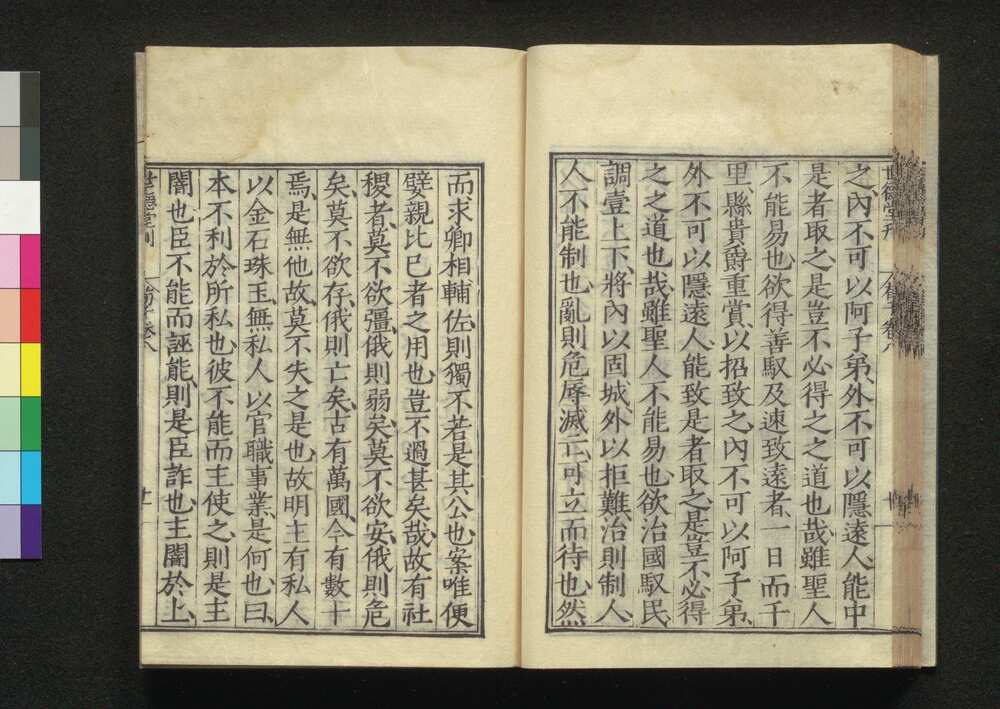 世德堂刊
荀子卷八
之、內不可以阿子弟、外不可以隱遠人、能中
是者取之、是豈不必得之之道也哉、雖聖人
不能易也、欲得善馭及速致遠者、一日而千
里、縣貴爵重賞、以招致之、內不可以阿子弟、
外不可以隱遠人、能致是者取之、是豈不必得
之之道也哉、雖聖人不能易也、欲治國馭民、
調壹上下、將內以固城、外以拒難、治則制人、
人不能制也、亂則危辱滅亡、可立而待也、然
而求卿相輔佐、則獨不若是其公也、案唯便
嬖親比已者之用也、豈不過甚矣哉、故有社
稷者、莫不欲彊、俄則弱矣、莫不欲安、俄則危
矣、莫不欲存、俄則亡矣、古有萬國、今有數十
焉、是無他故、莫不失之是也、故明主有私人
以金石珠玉、無私人以官職事業、是何也、曰、
本不利於所私也、彼不能而主使之、則是主
闇也、臣不能而誣能、則是臣詐也、主闇於上、
世德堂刊
荀子卷八
十一